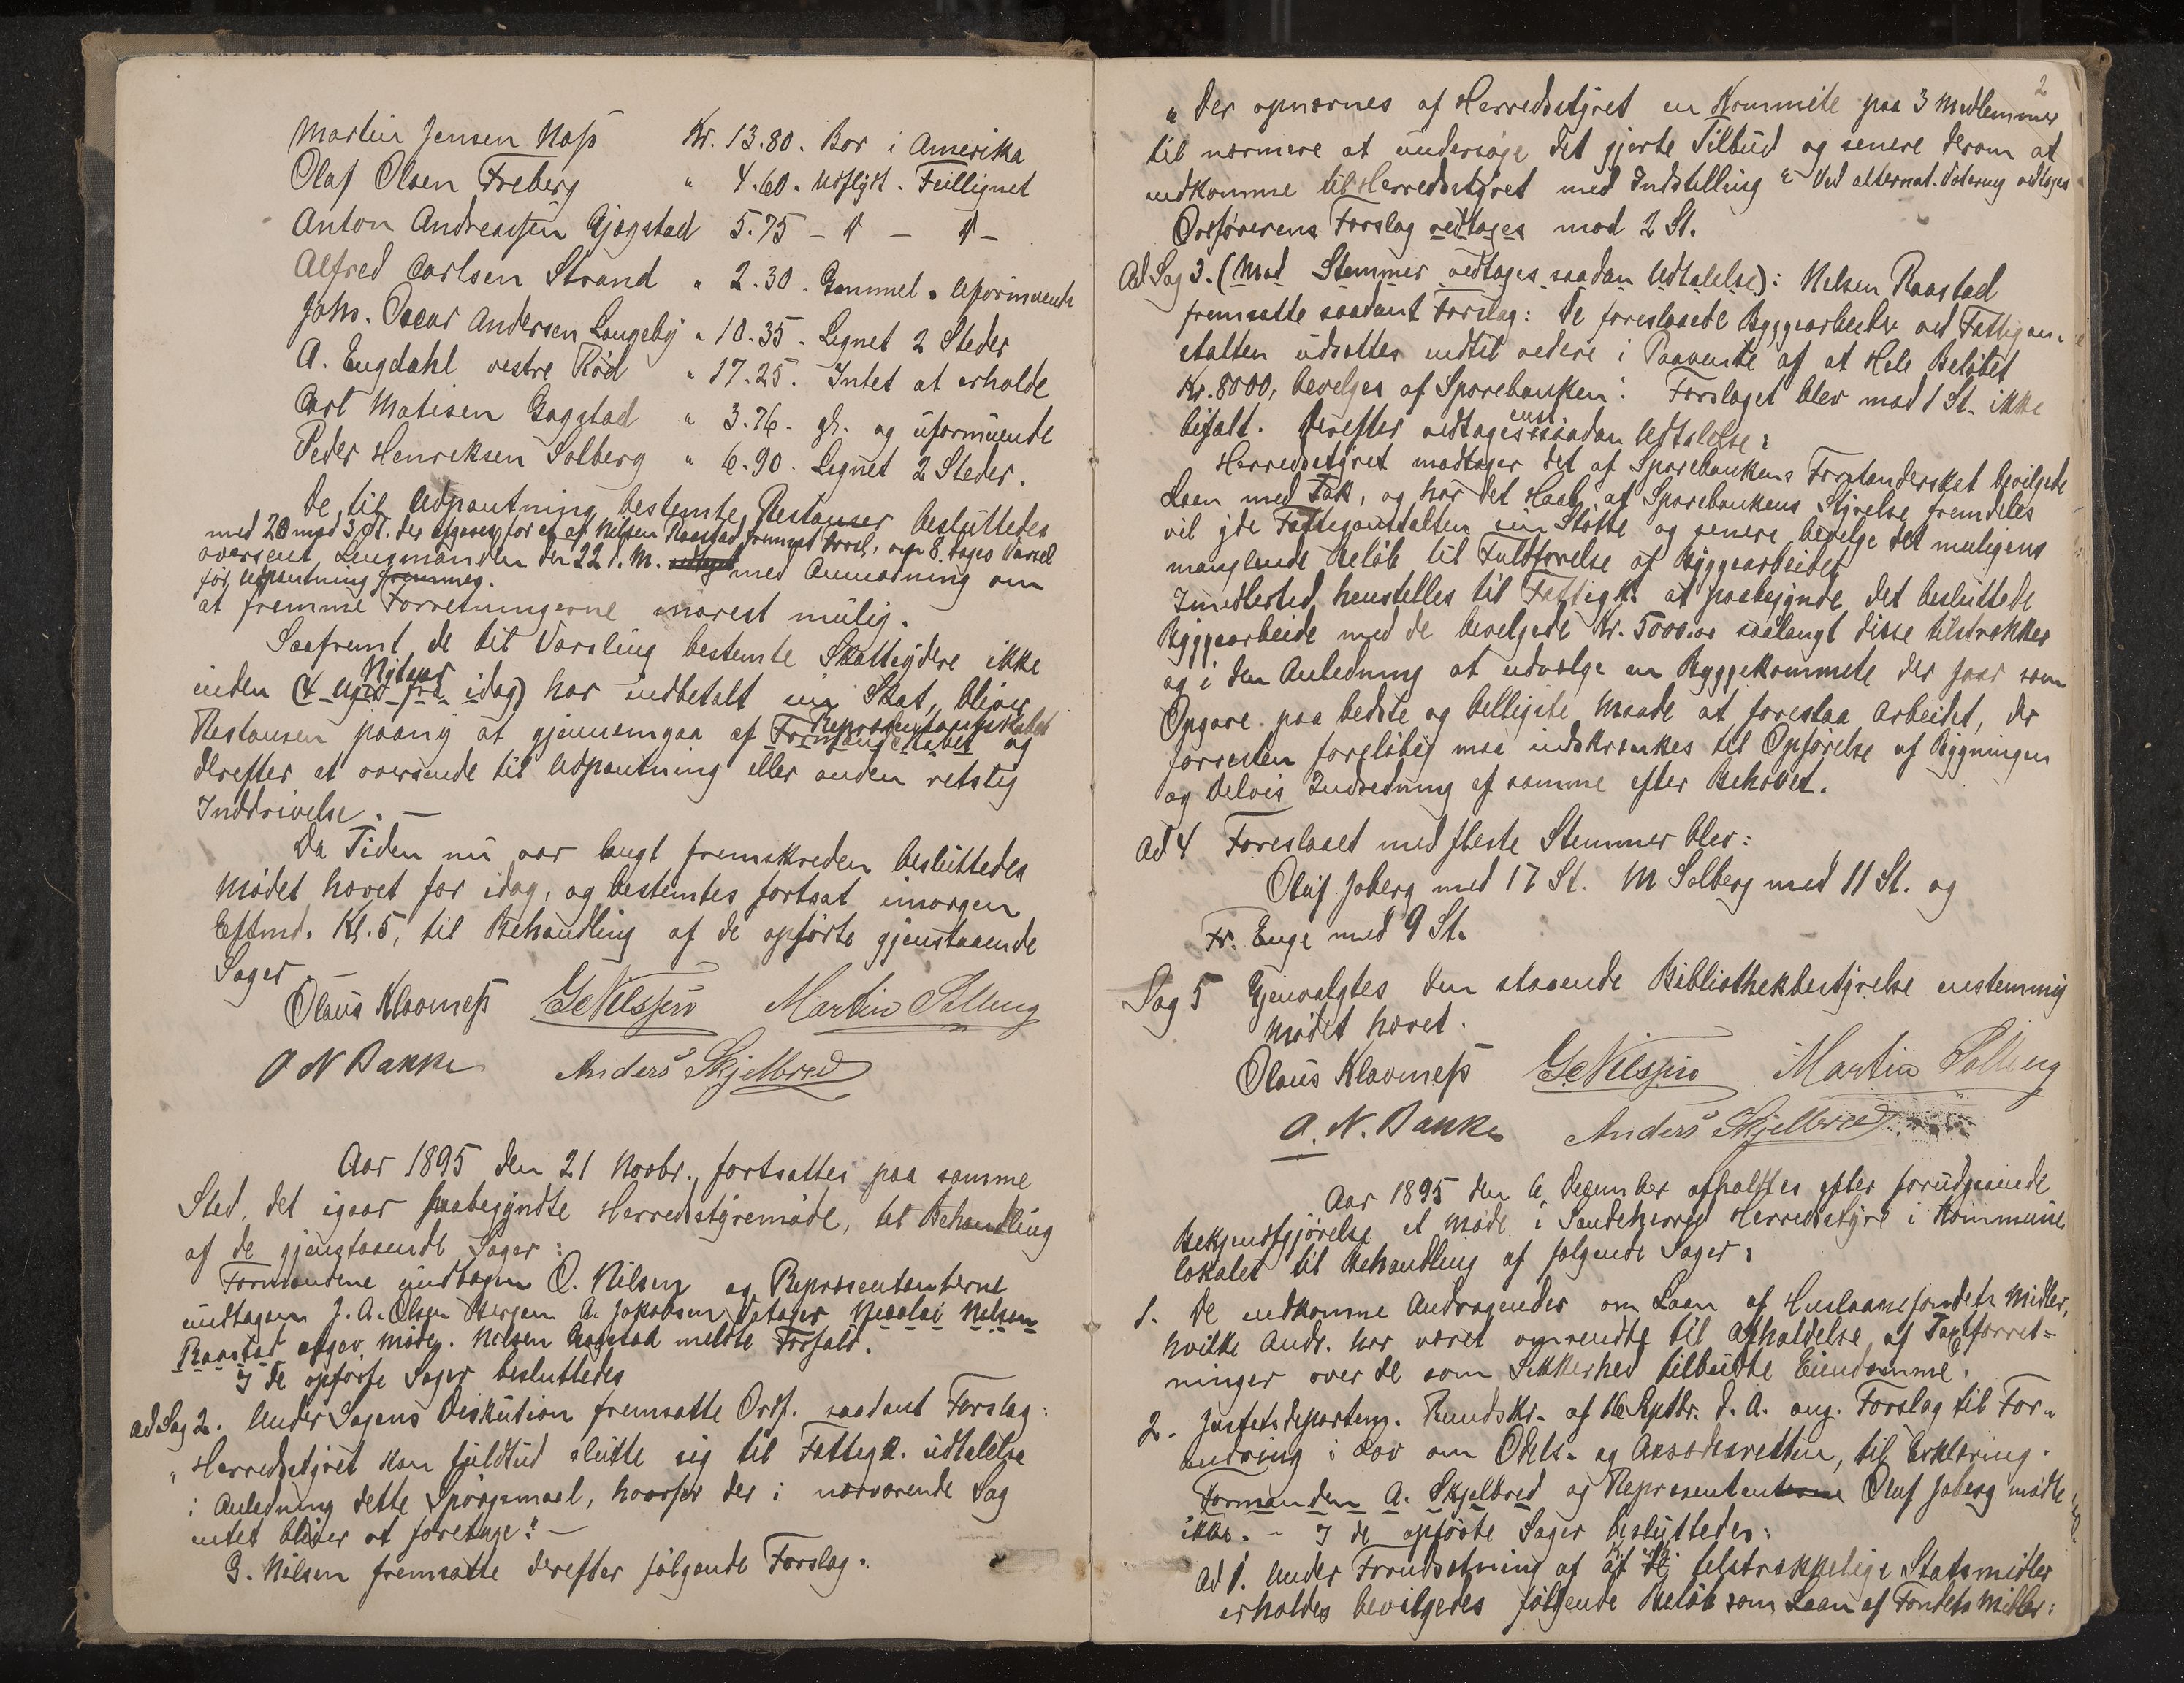 Martin Jensen Næss Kr. 13.80. Bor i Amerika
Olaf Olsen Freberg " 4.60. Udflyt. Feillignet
Anton Andreassen Gjøgstad 5.75 — " — " —
Alfred Carlsen Strand " 2.30. Gammel. Uformuende
Johs. Oscar Andersen Langeby " 10.35. Lignet 2 Steder
A. Engdahl vestre Rød " 17.25. Intet at erholde
Carl Matisen Gogstad " 3.76. gl. og uformuende
Peder Henriksen Solberg " 6.90. Lignet 2 Steder.
De til Udpantning bestemte Restanser besluttedes
med 20 mod 3 St. der afgaves for et af Nilsen Raastad fremsat Forsl. om 8 dages Varsel
oversent Lensmanden den 22 d. M. med Anmodning om
før Udpantning fremmes.
at fremme Forretningerne snarest mulig.
Saafremt de til Varsling bestemte Skatteydere ikke
Nytaar
inden (4 uger fra idag) har indbetalt sin Skat, bliver
Repræsentantskabet
Restansen paany at gjennemgaa af Formandskabet og
derefter at oversende til Udpantning eller anden retslig
Inddrivelse. —
Da Tiden nu var langt fremskreden besluttedes
Mødet hævet for idag, og bestemtes fortsat imorgen
Eftmd. Kl. 5, til Behandling af de opførte gjenstaaende
Sager.
Olaus Klavenæss G. Nilssen Martin Solberg
O N Bakke Anders Skjelbred
Aar 1895 den 21 Novbr., fortsattes paa samme
Sted, det igaar paabegyndte Herredsstyremøde, til Behandling
af de gjenstaaende Sager:
Formændene undtagen O. Nilsen og Repræsentanterne
undtagen J. A. Olsen Bergan A. Jakobsen Nicolai Nilsen
Raastad afgav møde. Nilsen Raastad meldte Forfald.
I de opførte Sager besluttedes
ad Sag 2. Under Sagens Diskution fremsatte Ordf. saadant Forslag:
" Herredsstyret kan fuldtud slutte sig til Fattigk. udtalelse
i Anledning dette Spørgsmaal, hvorfor der i nærværende Sag
intet bliver at foretage." —
G. Nilsen fremsatte derefter følgende Forslag:
2
" Der opnævnes af Herredsstyret en Kommite paa 3 Medlemmer
til nærmere at undersøge det gjorte Tilbud og senere derom at
indkomme til Herredsstyret med Indstilling " Ved alternat. Votering vedtoges
Ordførerens Forslag vedtages mod 2 St.
Ad Sag 3. (Mod Stemmer vedtages saadan Udtalelse): Nilsen Raastad
fremsatte saadant Forslag: De foreslaaede Byggearbeider ved Fattigan-
stalten udsættes indtil videre i Paavente af at Hele Beløbet
Kr. 8000, bevilges af Sparebanken: Forslaget blev mod 1 St. ikke
bifalt. Derefter vedtages enst. saadan Udtalelse:
Herredsstyret modtager det af Sparebankens Forstanderskab bevilgede
Laan med Tak, og har det Haab, at Sparebankens Styrelse fremdeles
vil yde Fattiganstalten sin Støtte og senere bevilge det muligens
manglende Beløb til Fuldførelse af Byggearbeidet
Imidlertid henstilles til Fattigk. at paabegynde det besluttede
Byggearbeide med de bevilgede Kr. 5000.00 saalangt disse tilstrækker
og i den Anledning at udvælge en Byggekommite der faar som
Opgave paa bedste og billigste Maade at forestaa Arbeidet, der
forresten foreløbig maa indskrænkes til Opførelse af Bygningen
og delvis Indredning af samme efter Behovet.
ad 4 Foreslaaet med fleste Stemmer blev:
Oluf Joberg med 17 St. M Solberg med 11 St. og
Fr. Enge med 9 St.
Sag 5 Gjenvalgtes den staaende Bibliothekbestyrelse enstemmig
Mødet hævet.
Olaus Klavenæss G. Nilssen Martin Solberg
O. N. Bakke Anders Skjelbred
Aar 1895 den 6 December afholdtes efter forudgaaende
Bekjendtgjørelse et Møde i Sandeherred Herredsstyre i Kommune-
lokalet til Behandling af følgende Sager:
1. De indkomne Andragender om Laan af Huslaanefondets Midler,
hvilke Andr. har været omsendte til Afholdelse af Taxtforret-
ninger over de som Sikkerhed tilbudte Eiendomme.
2. Justitsdepartem. Rundskr. af 16 Septbr. d. A. ang. Forslag til For-
andring i Lov om Odels- og Aasædesretten, til Erklæring.
Formanden A. Skjelbred og Repræsentanterne Oluf Joberg mødte
ikke. — I de opførte Sager besluttedes:
Ad 1. Under Forudsætning af at tilstrækkelige Statsmidler
erholdes bevilgedes følgende Beløb som Laan af Fondets Midler: